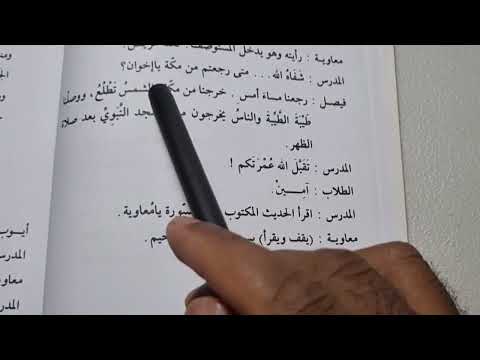 معاوية : رأيته وهو يدخل المستوصف.
المدرس : شَفَاهُ الله... متى رجعتم من مكّة ياإخوان؟
فيصل : رجعنا مساءَ أمس. خرجنا من مكّة الشمسُ تَطْلُعُ، ووصلنا
طَيْبَةَ الطَّيِّبَةَ والناسُ يخرجون جد النَّبَوِيِّ بعد صلاة
الظهر.
المدرس : تَقَبَّلَ الله عُمْرَتَكم !
الطلاب : آمِينْ.
المدرس : اقرأ الحديث المكتوب سّبّورة يامُعاوية.
معاوية : (يقف ويقرأ) حيم.
أيـوب
المدرس
معاوية
المدر